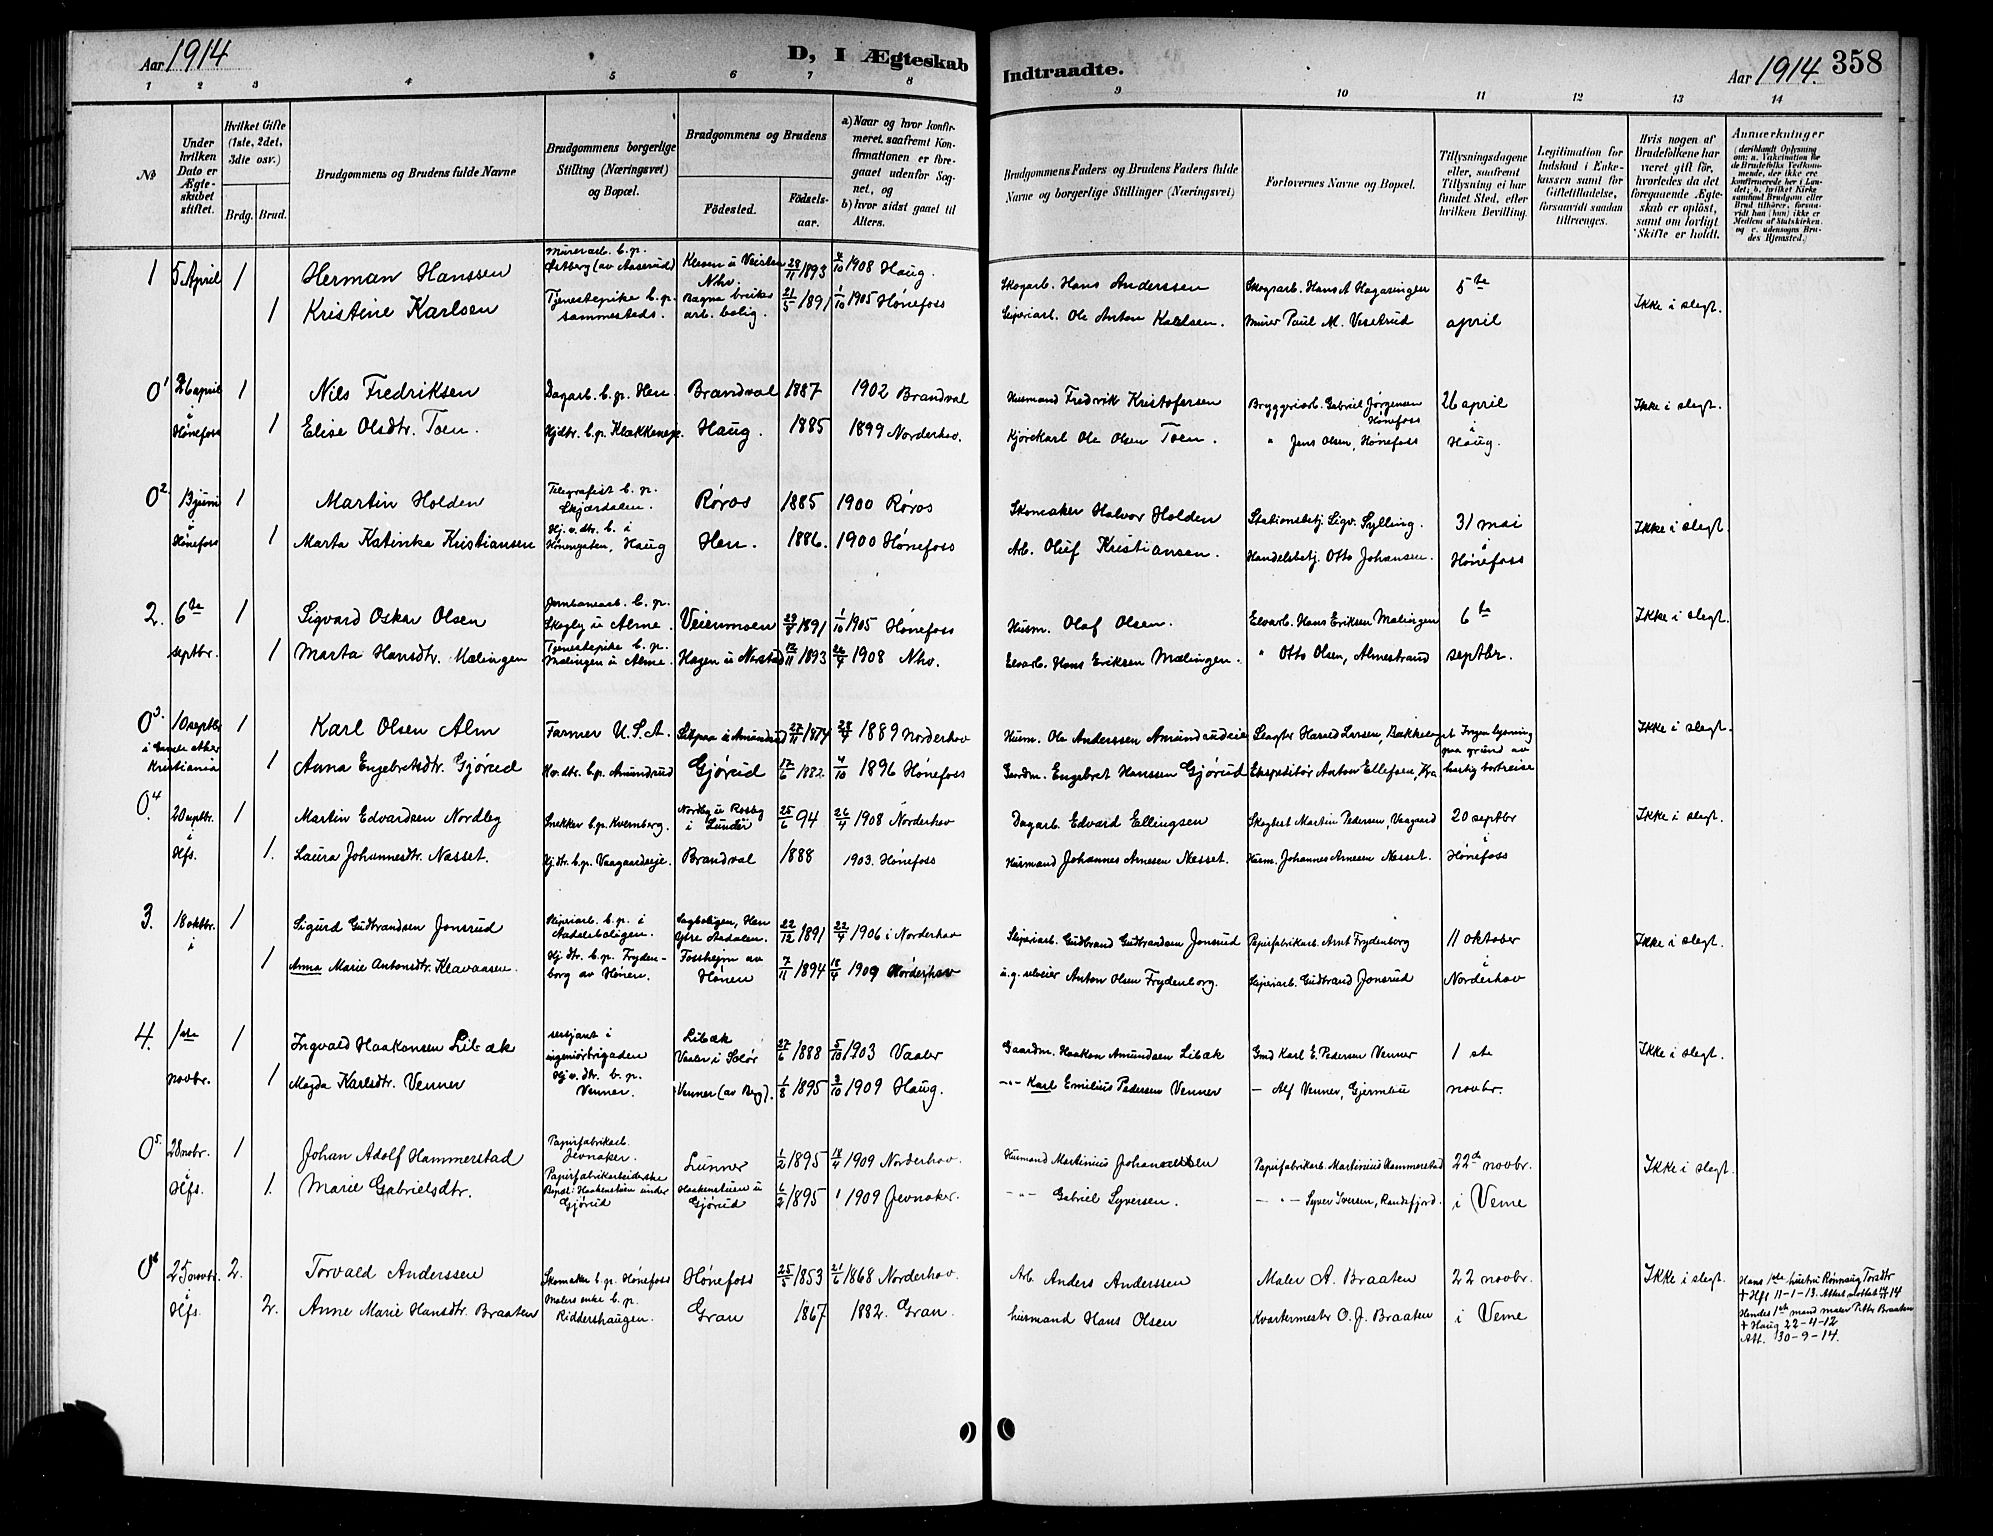 Aar 1914
D, I Ægteskab
Indtraadte.
Aar 1914. 358
1 2 3 4 5 6 7 8 9 10 11 12 13 14
No
Under hvilken Dato er Ægteskabet stiftet.
Hvilket Gifte (1ste, 2det, 3die osv.)
Brdg. Brud.
Brudgommens og Brudens fulde Navne
Brudgommens borgerlige Stilling (Næringsvei) og Bopæl.
Brudgommens og Brudens
Fødested. Fødselsaar.
a) Naar og hvor konfirmeret, saafremt Konfirmationen er foregaaet udenfor Sognet, og
b) hvor sidst gaaet til Alters.
Brudgommens Faders og Brudens Faders fulde Navne og borgerlige Stillinger (Næringsvei)
Forlovernes Navne og Bopæl.
Tillysningsdagene eller, saafremt Tillysning ei har fundet Sted, efter hvilken Bevilling.
Legitimation for Indskud i Enkekassen samt for Giftetilladelse, forsaavidt saadan tiltrænges.
Hvis nogen af Brudefolkene har været gift før, hvorledes da det foregaaende Ægteskab er opløst, samt om lovligt Skifte er holdt.
Anmærkninger (deriblandt Oplysning om: a. Vakcination for de Brudefolks Vedkommende, der ikke ere konfirmerede her i Landet; b. hvilket Kirkesamfund Brudgom eller Brud tilhører, forsaavidt han (hun) ikke er Medlem af Statskirken, og c. udensogns Brudes Hjemsted.)
1 5 April 1 Herman Hanssen Murerarb. b. p. Østberg (av Aaserud) Nhv. 28/11 1893 1908 Haug. Skogarb. Hans Anderssen Skogsarb. Hans A Hagaringen 5te
1 Kristine Karlsen Tjenestepike b. p. sammesteds. Bagna bruks arb. bolig. 21/5 1891 1/10 1905 Hønefoss Sliperiarb. Ole Anton Karlsen. Murer Paul M. Vesetrud april Ikke i slegt.
0 1 26 april 1 Nils Fredriksen Dagarb. b. p. Hen Brandval 1887 1902 Brandval Husmand Fredrik Kristofersen Bryggriarb. Gabriel Jørgensen Hønefoss 26 april Ikke i slegt.
i Hønefoss 1 Elise Olsdtr. Toen. Hjdtr. b. p. Klækkeneie. Haug. 1885 1899 Norderhov. Kjørekarl Ole Olsen Toen. " Jens Olsen, Hønefoss i Haug.
0 2. 13 juni 1 Martin Holden Telegrafist b. p. Skjærdalen. Røros 1885 1900 Røros Skomaker Halvor Holden Stationsbetj. Sigv. Sylling. 31 mai Ikke i slegt.
i Hønefoss 1 Marta Katinka Kristiansen Hj.v.dtr. b. i Hønengaten, Haug Hen. 1886. 1900 Hønefoss Arb. Oluf Kristiansen. Handelsbetj. Otto Johansen. i Hønefoss
2. 6te 1 Sigvard Oskar Olsen Jernbanearb. b. p. Skogly u Alme. Veienmoen 29/8 1891 1/10 1905 Hønefoss Husm. Olaf Olsen. Elvarb. Hans Eriksen Mælingen 6te Ikke i slegt.
septbr. 1 Marta Hansdtr. Mælingen Tjenestepike b. p. Mælingen u Alme. Hagen u Nærstad 12/11 1893 26/4 1908 Nhv. Elvarb. Hans Eriksen Mælingen. " Otto Olsen, Almestrand septbr.
0 3. 10 septbr 1 Karl Olsen Alm Farmer U.S.A. Sætpaa u Amundrud 27/11 1874 28/4 1889 Norderhov Husm. Ole Anderssen Amundrudeie Slagter Harald Larsen, Bækkelaget Ingen lysning paa grund av hurtig bortreise Ikke i slegt.
i Gamle Aker Kristiania 1 Anna Engebretsdtr. Gjørud Hv.dtr. b.p. Amundrud Gjørud 17/6 1882. 4/10 1896 Hønefoss Gaardm. Engebret Hanssen Gjørud Ekspeditør Anton Ellefsen, Kra
0 4. 20 septbr. 1 Martin Edvardsen Nordby Snekker b.p. Kvernberg. Nordby u Roseby i Lunder 25/6 94 26/4 1908 Norderhov Dagarb. Edvard Ellingsen Skogbest Martin Pedersen, Vaagaard 20 septbr Ikke i slegt.
i Hfs. 1. Laura Johannesdtr. Næsset. Hj.dtr. b.p. Vaagaardseje. Brandval 1888 1903. Hønefoss Husmand Johannes Arnesen Nesset. Husm. Johannes Arnesen Nesset. i Hønefoss
3. 18 oktbr. 1 Sigurd Gudbrandsen Jonsrud Sliperiarb. b. p. i Aadalsboligen. Sagboligen, Hen Ytre Aadalen. 22/12 1891 22/4 1906 i Norderhov Sliperiarb. Gudbrand Gudbrandsen Jonsrud Papirfabrikarb. Arnt Frydenborg 11 oktober Ikke i slegt.
i 1 Anna Marie Antonsdtr. Klavaasen. Hj dtr. b. p. Frydenborg av Hønen. Fossheim av Hønen 7/11 1894 18/4 1909 Norderhov u.g. selveier Anton Olsen Frydenborg. Sliperiarb. Gudbrand Jonsrud i Norderhov
4. 1ste 1 Ingvald Haakonsen Libæk sersjant i ingeniørbrigaden Libæk Vaaler i Solør 27/6 1888 5/10 1903 Vaaler Gaardm. Haakon Amundsen Libæk Gmd Karl E. Pedersen Venner 1 ste Ikke i slegt.
novbr. 1 Magda Karlsdtr. Venner Hj.v.dtr. b. p. Venner. Venner (av Berg). 1/8 1895 3/10 1909 Haug. -"- Karl Emilius Pedersen Venner — Alf Venner, Gjermbu novbr.
0 5. 28 nobr. 1 Johan Adolf Hammerstad Papirfabrikarb. Jevnaker. Lunner 1/2 1895 18/4 1909 Norderhov. Husmand Martinius Johannessen Papirfabrikarb. Martinius Hammerstad 22de novbr. Ikke i slegt.
i Hfs. 1. Marie Gabrielsdtr. Papirfabrikarbeiderske Bopæl: Haakenstuen under Gjørud Haakenstuen u Gjørud 6/2 1895 1909 Jevnaker. -"- Gabriel Syversen. -"- Syver Iversen, Randsfjord. i Veme
0 6 25 novbr. 2. Torvald Anderssen Skomaker b. p. Hønefoss Hønefoss 25/5 1853 21/6 1868 Norderhov. Arb. Anders Anderssen Maler A. Braaten 22 novbr. Ikke i slegt.
Hfs. 2. Anne Marie Hansdtr. Braaten Malers enke b. p. Riddershaugen. Gran 1867 1882. Gran. husmand Hans Olsen Kvartermester O. J. Braaten i Veme
Hans 1ste hustru Rønnaug Torsdtr
+ Hfs 11-1-13. Attest
Hendes 1ste mand maler Petter Braaten
+ Haug 22-4-12
Att. 30-9-14.